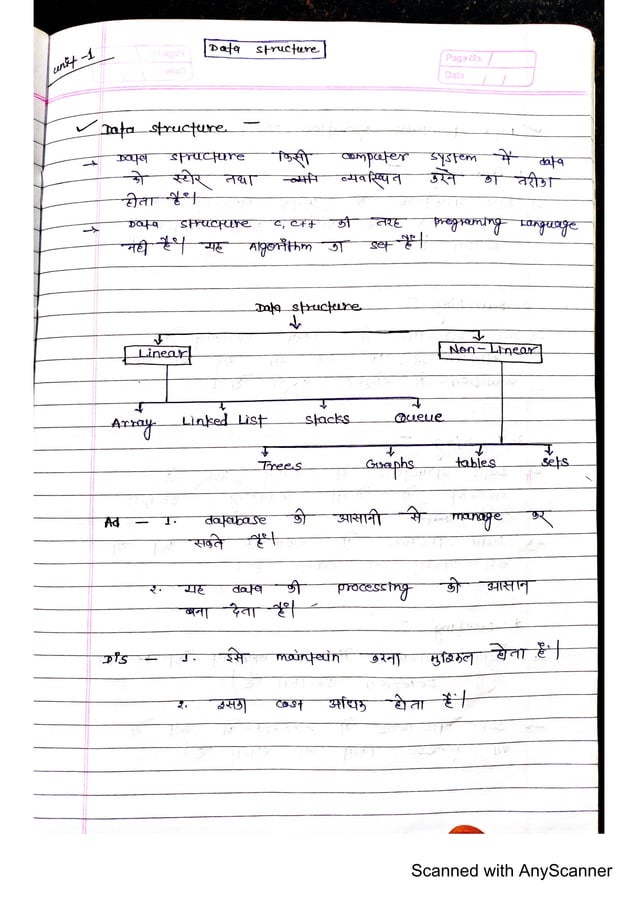 Unit -1
Data Structure
Page No.
Date / /
✓ Data Structure -
→ Data structure किसी computer system में data
को स्टोर तथा व्यवस्थित करने का तरीका
होता है।
→ Data structure C, C++ की तरह Programing Language
नही है। यह Algorithm का set है।
Data structure
Linear Non-Linear
Array Linked List Stacks Queue
Trees Graphs tables sets
Ad - 1. database को आसानी से manage कर
सकते है।
2. यह data की processing को आसान
बना देता है।
Dis - 1. इसे maintain करना मुश्किल होता है।
2. इसका cost अधिक होता है।
Scanned with AnyScanner